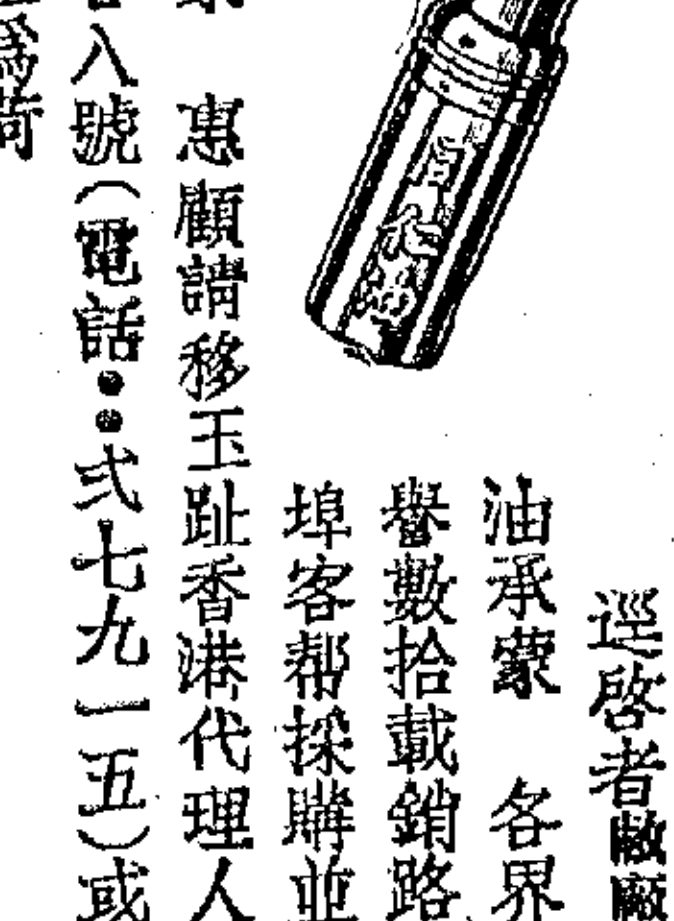 逕啓者敝廠
油承蒙　各界
譽數拾載銷路
埠客帮採購並
惠顧請移玉趾香港代理人
八號（電話：弍七九一五）或
爲荷